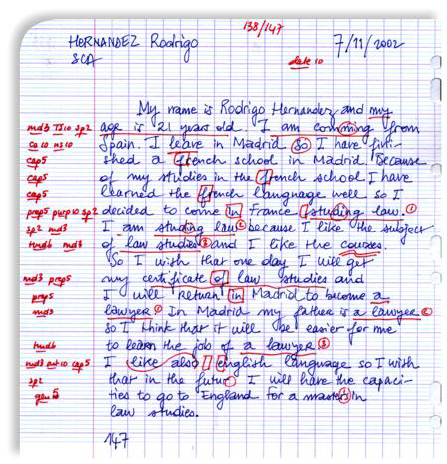 138/147
HERNANDEZ Rodrigo 7/11/2002
SCA date 10
My name is Rodrigo Hernandez and my
md3 TS10 sp2 age is 21 years old. I am comming from
Co10 ns10 Spain. I leave in Madrid so I have fini-
cap5 shed a french school in Madrid. Because
cap5 of my studies in the french school I have
cap5 learned the french language well so I
prep5 purp10 sp2 decided to come in France studing law. 1
sp2 md3 I am studing law 2 because I like the subject
tmd6 md3 of law studies 3 and I like the courses.
So I wish that one day I will get
md3 prep5 my certificate of law studies and
prep5 I will return in Madrid to become a
md3 lawyer 1 In Madrid my father is a lawyer 2
so I think that it will be easier for me
tmd6 to learn the job of a lawyer 3
md3 art10 cap5 I like also english language so I wish
sp2 that in the futur I will have the capaci-
gen5 ties to go to England for a master 1 in
law studies.
147